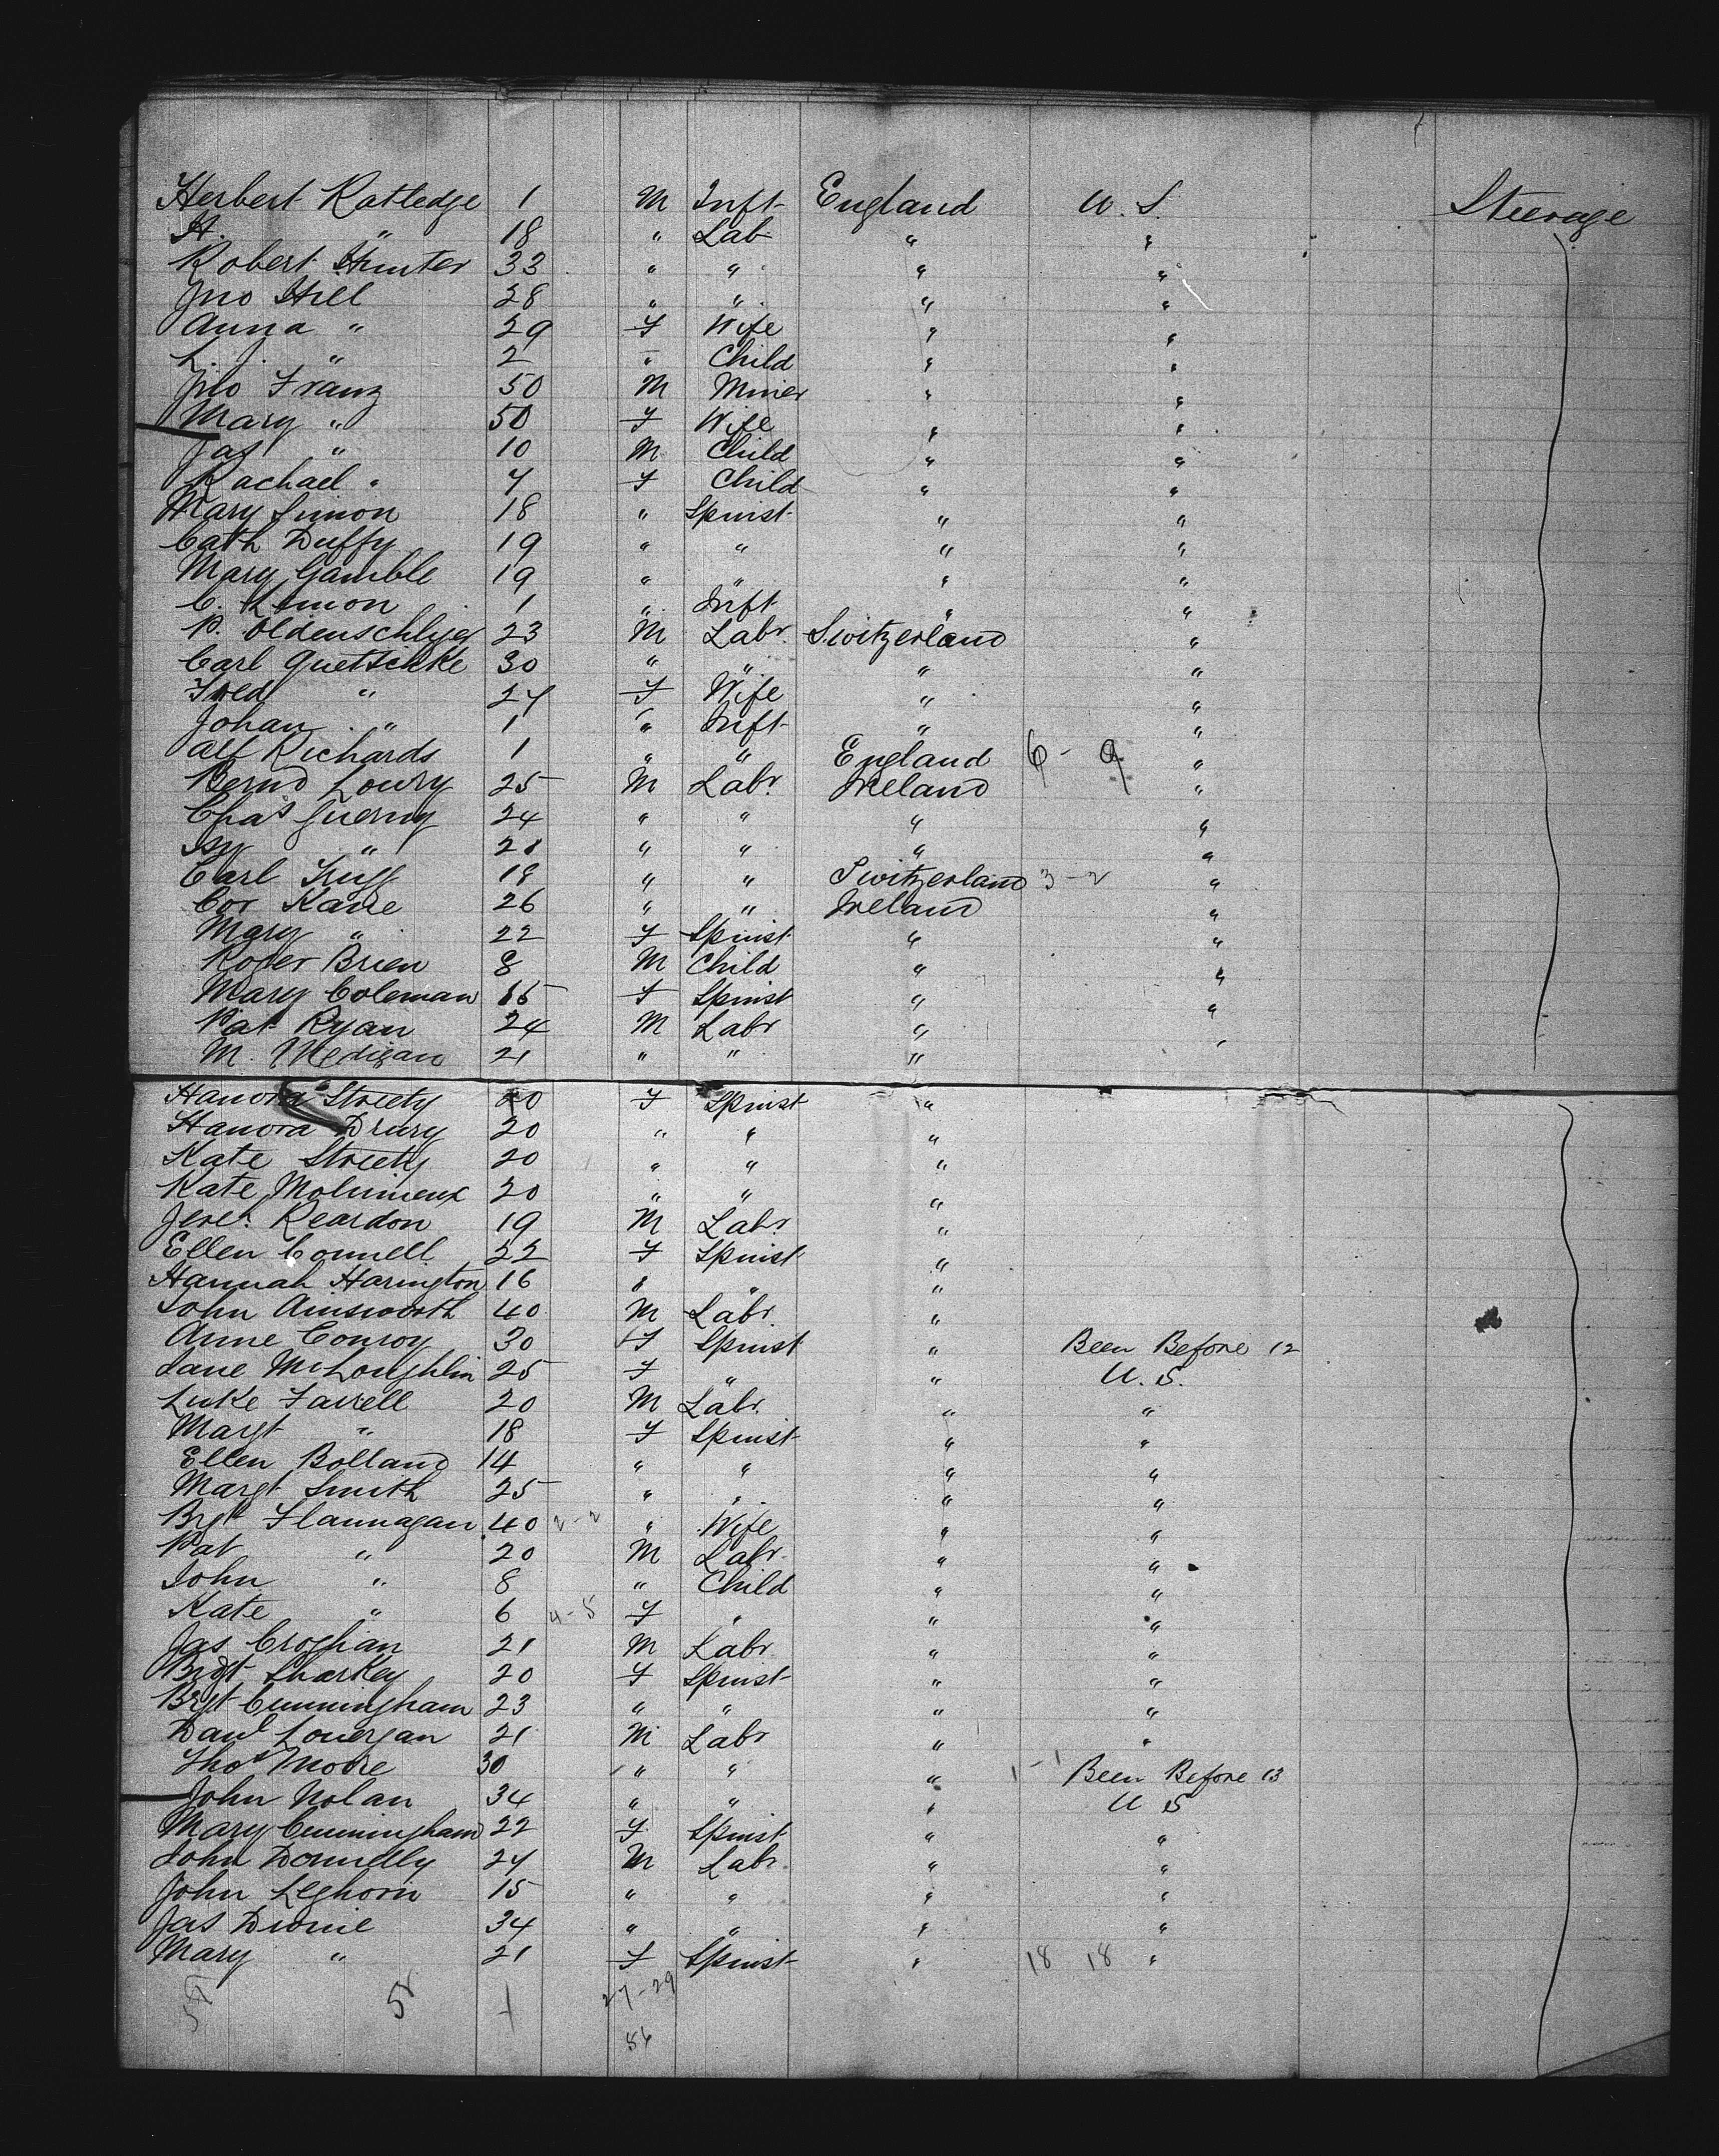 Herbert Ratledge 1 M Inft England U.S. Steerage
H. " 18 " Lab " "
Robert Hunter 33 " " " "
Jno Hill 28 " " " "
Anna " 29 F Wife " "
L. J. " 2 " Child " "
Jno Franz 50 M Miner " "
Mary " 50 F Wife " "
Jas " 10 M Child " "
Rachael " 7 F Child " "
Mary Simon 18 " Spinst " "
Cath Duffy 19 " " " "
Mary Gamble 19 " " " "
C. Simon 1 " Inft " "
P. Oldenschlyer 23 M Labr. Switzerland "
Carl Quetschke 30 " " " "
Fred " 27 F Wife " "
Johan " 1 " Inft " "
Alf Richards 1 " " England 6 - 9 "
Bernd Lowry 25 M Labr. Ireland "
Chas Guerny 24 " " " "
" 21 " " " "
Carl 18 " " Switzerland 3-2 "
Cor Kane 26 " " Ireland "
Mary " 22 F Spinst " "
Roger Brien 8 M Child " "
Mary Coleman 15 F Spinst " "
Pat Ryan 24 M Labr " "
M. Medigan 21 " " "
Hanora Streety 20 F Spinst "
Hanora Drury 20 " " "
Kate Streety 20 " " "
Kate Molineux 20 " " "
Jere. Reardon 19 M Labr. "
Ellen Connell 22 F Spinst "
Hannah Harington 16 " " "
John Ainsworth 40 M Labr. "
Anne Conroy 30 F Spinst " Been Before 12
Jane McLoughlin 25 F " " U.S.
Luke Farrell 20 M Labr. " "
Margt " 18 F Spinst " "
Ellen Bolland 14 " " " "
Margt Smith 25 " " " "
Brgt Flannagan 40 2-2 " Wife " "
Pat " 20 M Labr. " "
John " 8 " Child " "
Kate " 6 4-5 F " " "
Jas Croghan 21 M Labr " "
Brgt Sharkey 20 F Spinst " "
Brgt Cunningham 23 " " " "
Danl Lonergan 21 M Labr " "
Thos Moore 30 " " " 1-1 Been Before 13
John Nolan 34 " " " U S
Mary Cunningham 22 F Spinst " "
John Donnelly 27 M Labr. " "
John Leghorn 15 " " " "
Jas 34 " " " "
Mary " 21 F Spinst " 18 18 "
58 1 27-29
56